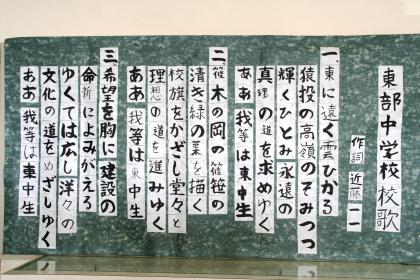 東部中学校校歌
作詞 近藤一一
一、東に遠く雲ひかる
猿投の高嶺のぞみつつ
輝くひとみ永遠の
真理の道を求めゆく
ああ我等は東中生
二、篠木の岡の篠笹の
清き緑の葉を描く
校旗をかざし堂々と
理想の道を進みゆく
ああ我等は東中生
三、希望を胸に建設の
命によみがえる
ゆくては広し洋々の
文化の道をめざしゆく
ああ我等は東中生